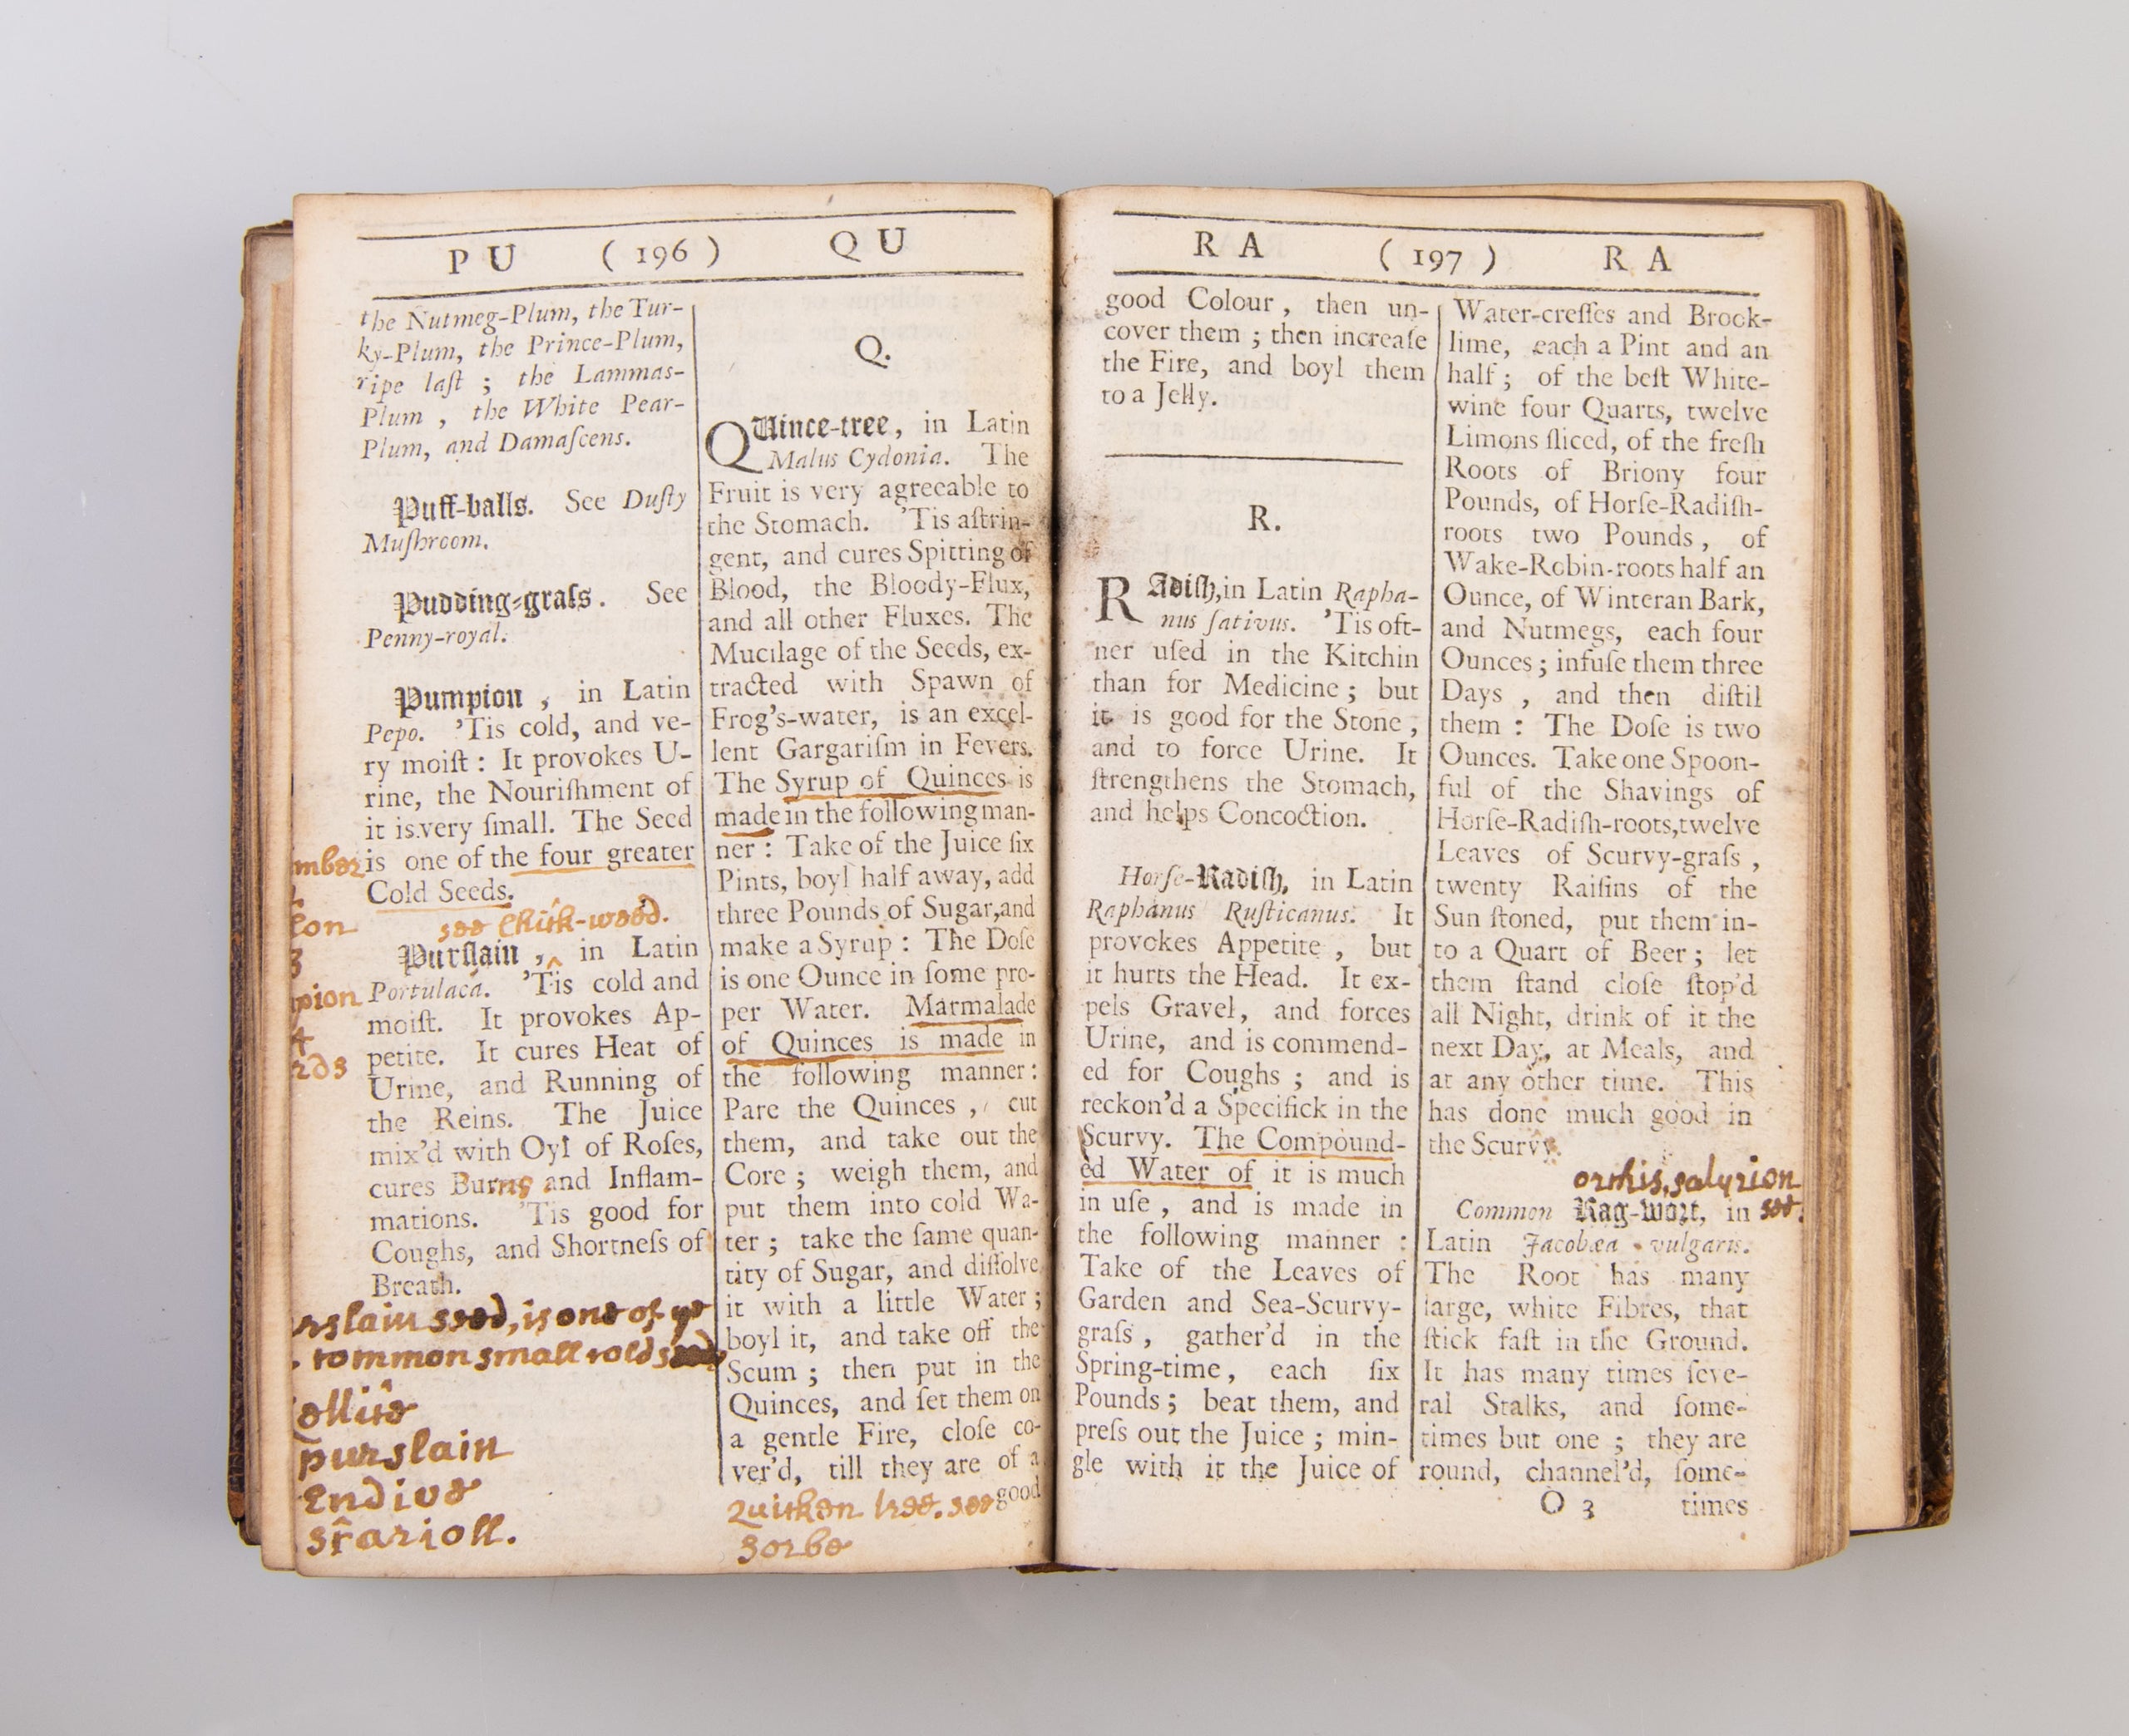 PU ( 196 ) QU
the Nutmeg-Plum, the Tur-
ky-Plum, the Prince-Plum,
ripe laſt ; the Lammas-
Plum , the White Pear-
Plum, and Damaſcens.
Puff-balls. See Duſty
Muſhroom.
Pudding-graſs. See
Penny-royal.
Pumpion , in Latin
Pepo. 'Tis cold, and ve-
ry moiſt : It provokes U-
rine, the Nouriſhment of
it is very ſmall. The Seed
is one of the four greater
Cold Seeds.
see Chick-weed.
Purſlain , in Latin
Portulaca. 'Tis cold and
moiſt. It provokes Ap-
petite. It cures Heat of
Urine, and Running of
the Reins. The Juice
mix'd with Oyl of Roſes,
cures Burns and Inflam-
mations. 'Tis good for
Coughs, and Shortneſs of
Breath.
rslain seed, is one of ye
common small cold
purslain
Endive
Q.
QUince-tree, in Latin
Malus Cydonia. The
Fruit is very agreeable to
the Stomach. 'Tis aſtrin-
gent, and cures Spitting of
Blood, the Bloody-Flux,
and all other Fluxes. The
Mucilage of the Seeds, ex-
tracted with Spawn of
Frog's-water, is an excel-
lent Gargariſm in Fevers.
The Syrup of Quinces is
made in the following man-
ner : Take of the Juice ſix
Pints, boyl half away, add
three Pounds of Sugar, and
make a Syrup : The Doſe
is one Ounce in ſome pro-
per Water. Marmalade
of Quinces is made in
the following manner :
Pare the Quinces , cut
them, and take out the
Core ; weigh them, and
put them into cold Wa-
ter ; take the ſame quan-
tity of Sugar, and diſſolve
it with a little Water ;
boyl it, and take off the
Scum ; then put in the
Quinces, and ſet them on
a gentle Fire, cloſe co-
ver'd, till they are of a
good
Quicken tree. see
Sorbe
RA ( 197 ) RA
good Colour , then un-
cover them ; then increaſe
the Fire, and boyl them
to a Jelly.
R.
RAdiſh, in Latin Rapha-
nus ſativus. 'Tis oft-
ner uſed in the Kitchin
than for Medicine ; but
it is good for the Stone ,
and to force Urine. It
ſtrengthens the Stomach,
and helps Concoction.
Horſe-Radiſh, in Latin
Raphanus Ruſticanus. It
provokes Appetite , but
it hurts the Head. It ex-
pels Gravel, and forces
Urine, and is commend-
ed for Coughs ; and is
reckon'd a Specifick in the
Scurvy. The Compound-
ed Water of it is much
in uſe , and is made in
the following manner :
Take of the Leaves of
Garden and Sea-Scurvy-
graſs , gather'd in the
Spring-time, each ſix
Pounds ; beat them, and
preſs out the Juice ; min-
gle with it the Juice of
Water-creſſes and Brook-
lime, each a Pint and an
half ; of the beſt White-
wine four Quarts, twelve
Limons ſliced, of the freſh
Roots of Briony four
Pounds, of Horſe-Radiſh-
roots two Pounds , of
Wake-Robin-roots half an
Ounce, of Winteran Bark,
and Nutmegs, each four
Ounces ; infuſe them three
Days , and then diſtil
them : The Doſe is two
Ounces. Take one Spoon-
ful of the Shavings of
Horſe-Radiſh-roots, twelve
Leaves of Scurvy-graſs ,
twenty Raiſins of the
Sun ſtoned, put them in-
to a Quart of Beer ; let
them ſtand cloſe ſtop'd
all Night, drink of it the
next Day, at Meals, and
at any other time. This
has done much good in
the Scurvy.
orchis, satyrion
see.
Common Rag-wort, in
Latin Jacobæa vulgaris.
The Root has many
large, white Fibres, that
ſtick faſt in the Ground.
It has many times ſeve-
ral Stalks, and ſome-
times but one ; they are
round, channel'd, ſome-
O 3 times